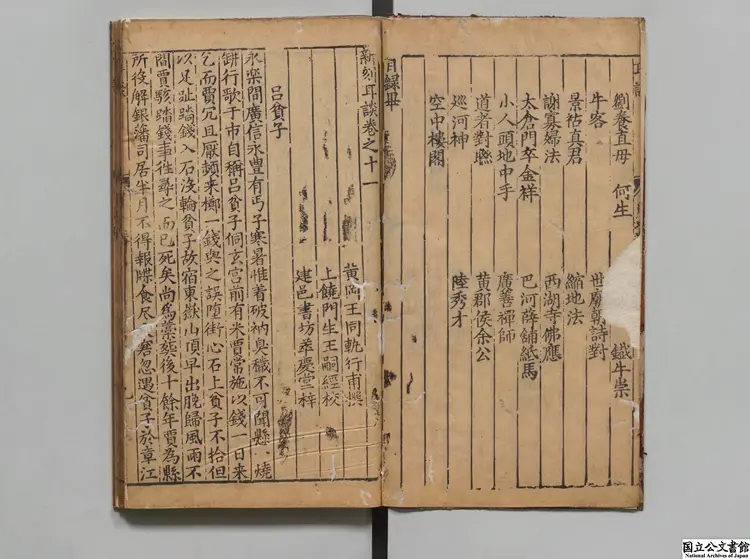 劉奉直母　何生　鐵牛祟
牛客　世廟朝詩對
景祐真君　縮地法
謝寡婦法　西湖寺佛應
太倉門卒金祥　巴河薛鋪紙馬
小人頭地中手　廣善禪師
道者對聯　黃郡侯余公
巡河神　陸秀才
空中樓閣
目錄畢
新刻耳談卷之十一
黃岡王同軌行甫撰
上饒門生王嗣經校
建邑書坊萃慶堂梓
呂貧子
永樂間廣信永豐有丐子寒暑惟着破衲臭穢不可聞縣、燒
餅行歌于市自稱呂貧子侗玄宮前有米賈常施以錢一日來
乞而賈冗且厭頻来擲一錢與之誤墮街心石上貧子不拾但
以足趾踏錢入石沒輪貧子故宿東嶽山頂早出晚歸風雨不
間賈駭踏錢事往尋之而已死矣尚為藁葬後十餘年賈為縣
所役解銀藩司居半月不得報牒食尽窘忽遇貧子於章江
耳談
国立公文書館
National Archives of Japan